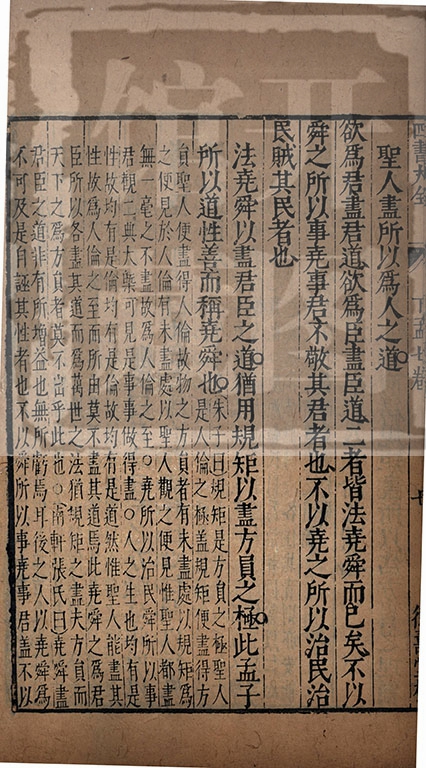 聖人盡所以為人之道
欲為君盡君道欲為臣盡臣道二者皆法堯舜而已矣不以
舜之所以事堯事君不敬其君者也不以堯之所以治民治
民賊其民者也
法堯舜以盡君臣之道猶用規矩以盡方員之極此孟子
所以道性善而稱堯舜也
朱子曰規矩是方員之極聖人
是人倫之極蓋規矩便盡得方
員聖人便盡得人倫故物之方員者有未盡處以規矩為
之便見於人倫有未盡處以聖人觀之便見惟聖人都盡
無一毫之不盡故為人倫之至○堯所以治民舜所以事
君觀二典大槩可見是事事做得盡○人之生也均有是
性故均有是倫均有是倫故均有是道然惟聖人能盡其
性故為人倫之至而所由莫不盡其道焉此堯舜之為君
臣所以各盡其道而為萬世之法猶規矩之盡夫方員而
天下之為方員者莫不出乎此也○南軒張氏曰堯舜盡
君臣之道非有所增益也無所虧焉耳後之人以堯舜為
不可及是自誣其性者也不以舜所以事堯事君蓋不以